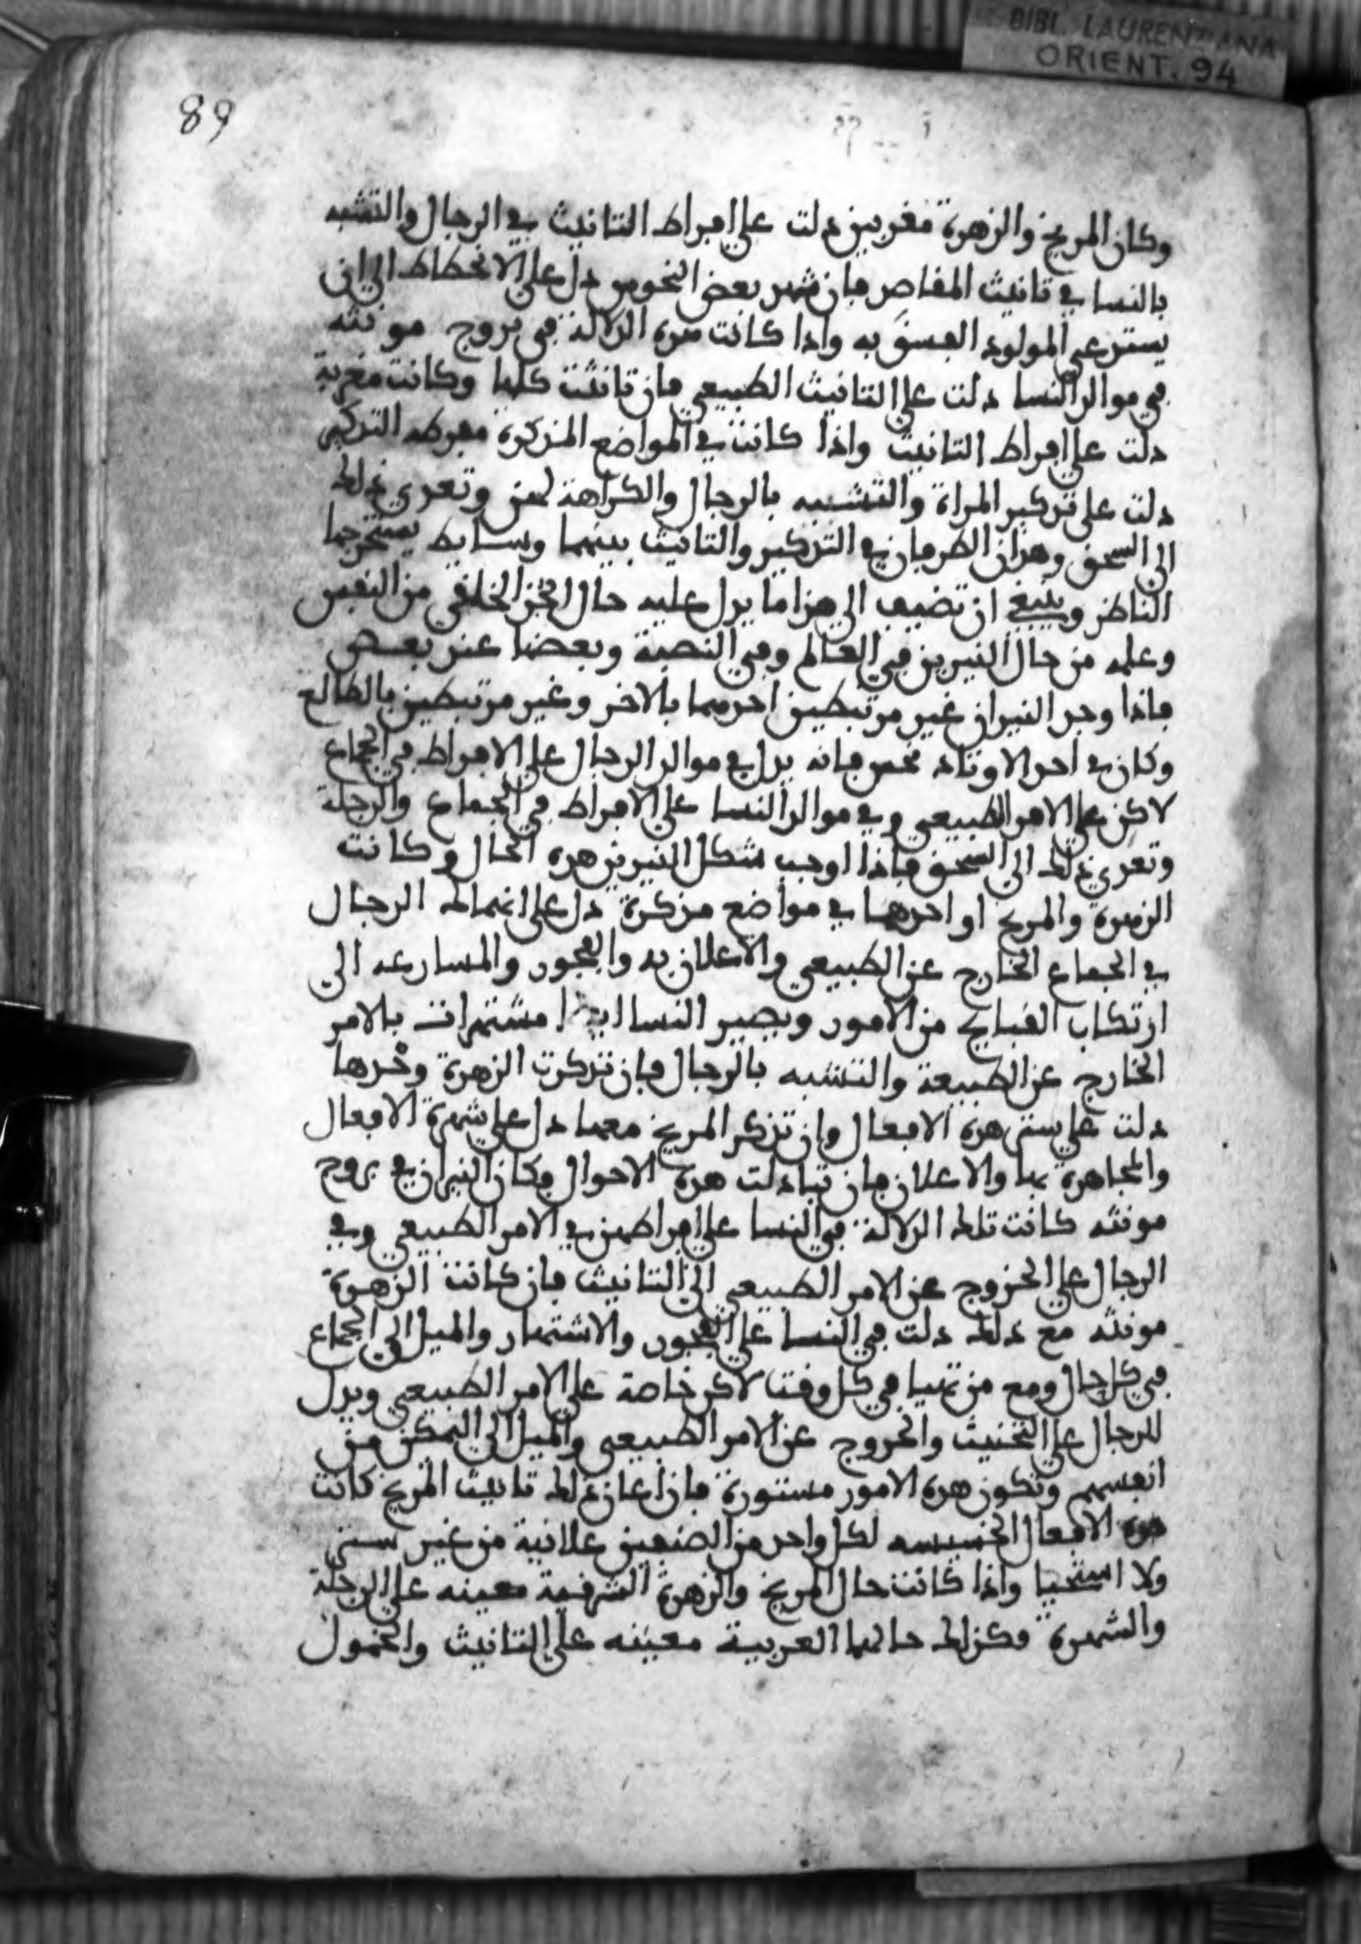 BIBL. LAURENZIANA
ORIENT. 94
89
وكان المريخ والزهرة مغربين دلت على افراط التانيث في الرجال والتشبه
بالنسا في تانيث المفاصل فان شهر بعض النحوس دل على الانحطاط الى ان
يسترعي المولود الفسق به واذا كانت هذه الدلالة في بروج مونثه
في موالد النسا دلت على التانيث الطبيعي فان تانثت كلها وكانت مغربة
دلت على افراط التانيث واذا كانت في المواضع المذكرة مفرطه التذكير
دلت على تذكير المراة والتشبه بالرجال والكراهة لهن وتعدى ذلك
الى السحق وهذان الطرفان في التذكير والتانيث بينهما وسايط يستخرجها
الناظر وينبغي ان تضيف الى هذا ما يدل عليه حال الجز الخلقي من النفس
وعلمه من حال النيرين في العالم وفي النصبة وبعضها عند بعض
فاذا وجد النيران غير مرتبطين احدهما بالاخر وغير مرتبطين بالطالع
وكان في احد الاوتاد نحس فانه يدل في موالد الرجال على الافراط في الجماع
لاكن على الامر الطبيعي وفي موالد النسا على الافراط في الجماع والرجلة
وتعدى ذلك الى السحق فاذا اوجب شكل النيرين هذه الحال وكانت
الزهرة والمريخ او احدهما في مواضع مذكرة دل على انهماك الرجال
في الجماع الخارج عن الطبيعي والاعلان به والفجور والمسارعه الى
ارتكاب القبايح من الامور ويصير النسا ايضا مشتهرات بالامر
الخارج عن الطبيعة والتشبه بالرجال فان تذكرت الزهرة وحدها
دلت على ستر هذه الافعال وان تذكر المريخ معها دل على شهرة الافعال
والمجاهرة بها والاعلان فان تبادلت هذه الاحوال وكان النيران في بروج
مونثه كانت تلك الدلالة في النسا على افراطهن في الامر الطبيعي وفي
الرجال على الخروج عن الامر الطبيعي الى التانيث فان كانت الزهرة
مونثه مع ذلك دلت في النسا على الفجور والاشتهار والميل الى الجماع
في كل حال ومع من تهيا في كل وقت لاكن خاصة على الامر الطبيعي ويدل
للرجال على التخنيث والخروج عن الامر الطبيعي والميل الى التمكن من
انفسهم وتكون هذه الامور مستورة فان اعان ذلك تانيث المريخ كانت
هذه الافعال الخسيسه لكل واحد من الصنفين علانية من غير ستر
ولا استحيا واذا كانت حال المريخ والزهرة الشرقية معينه على الرجلة
والشهرة فكذلك حالهما الغربية معينه على التانيث والخمول